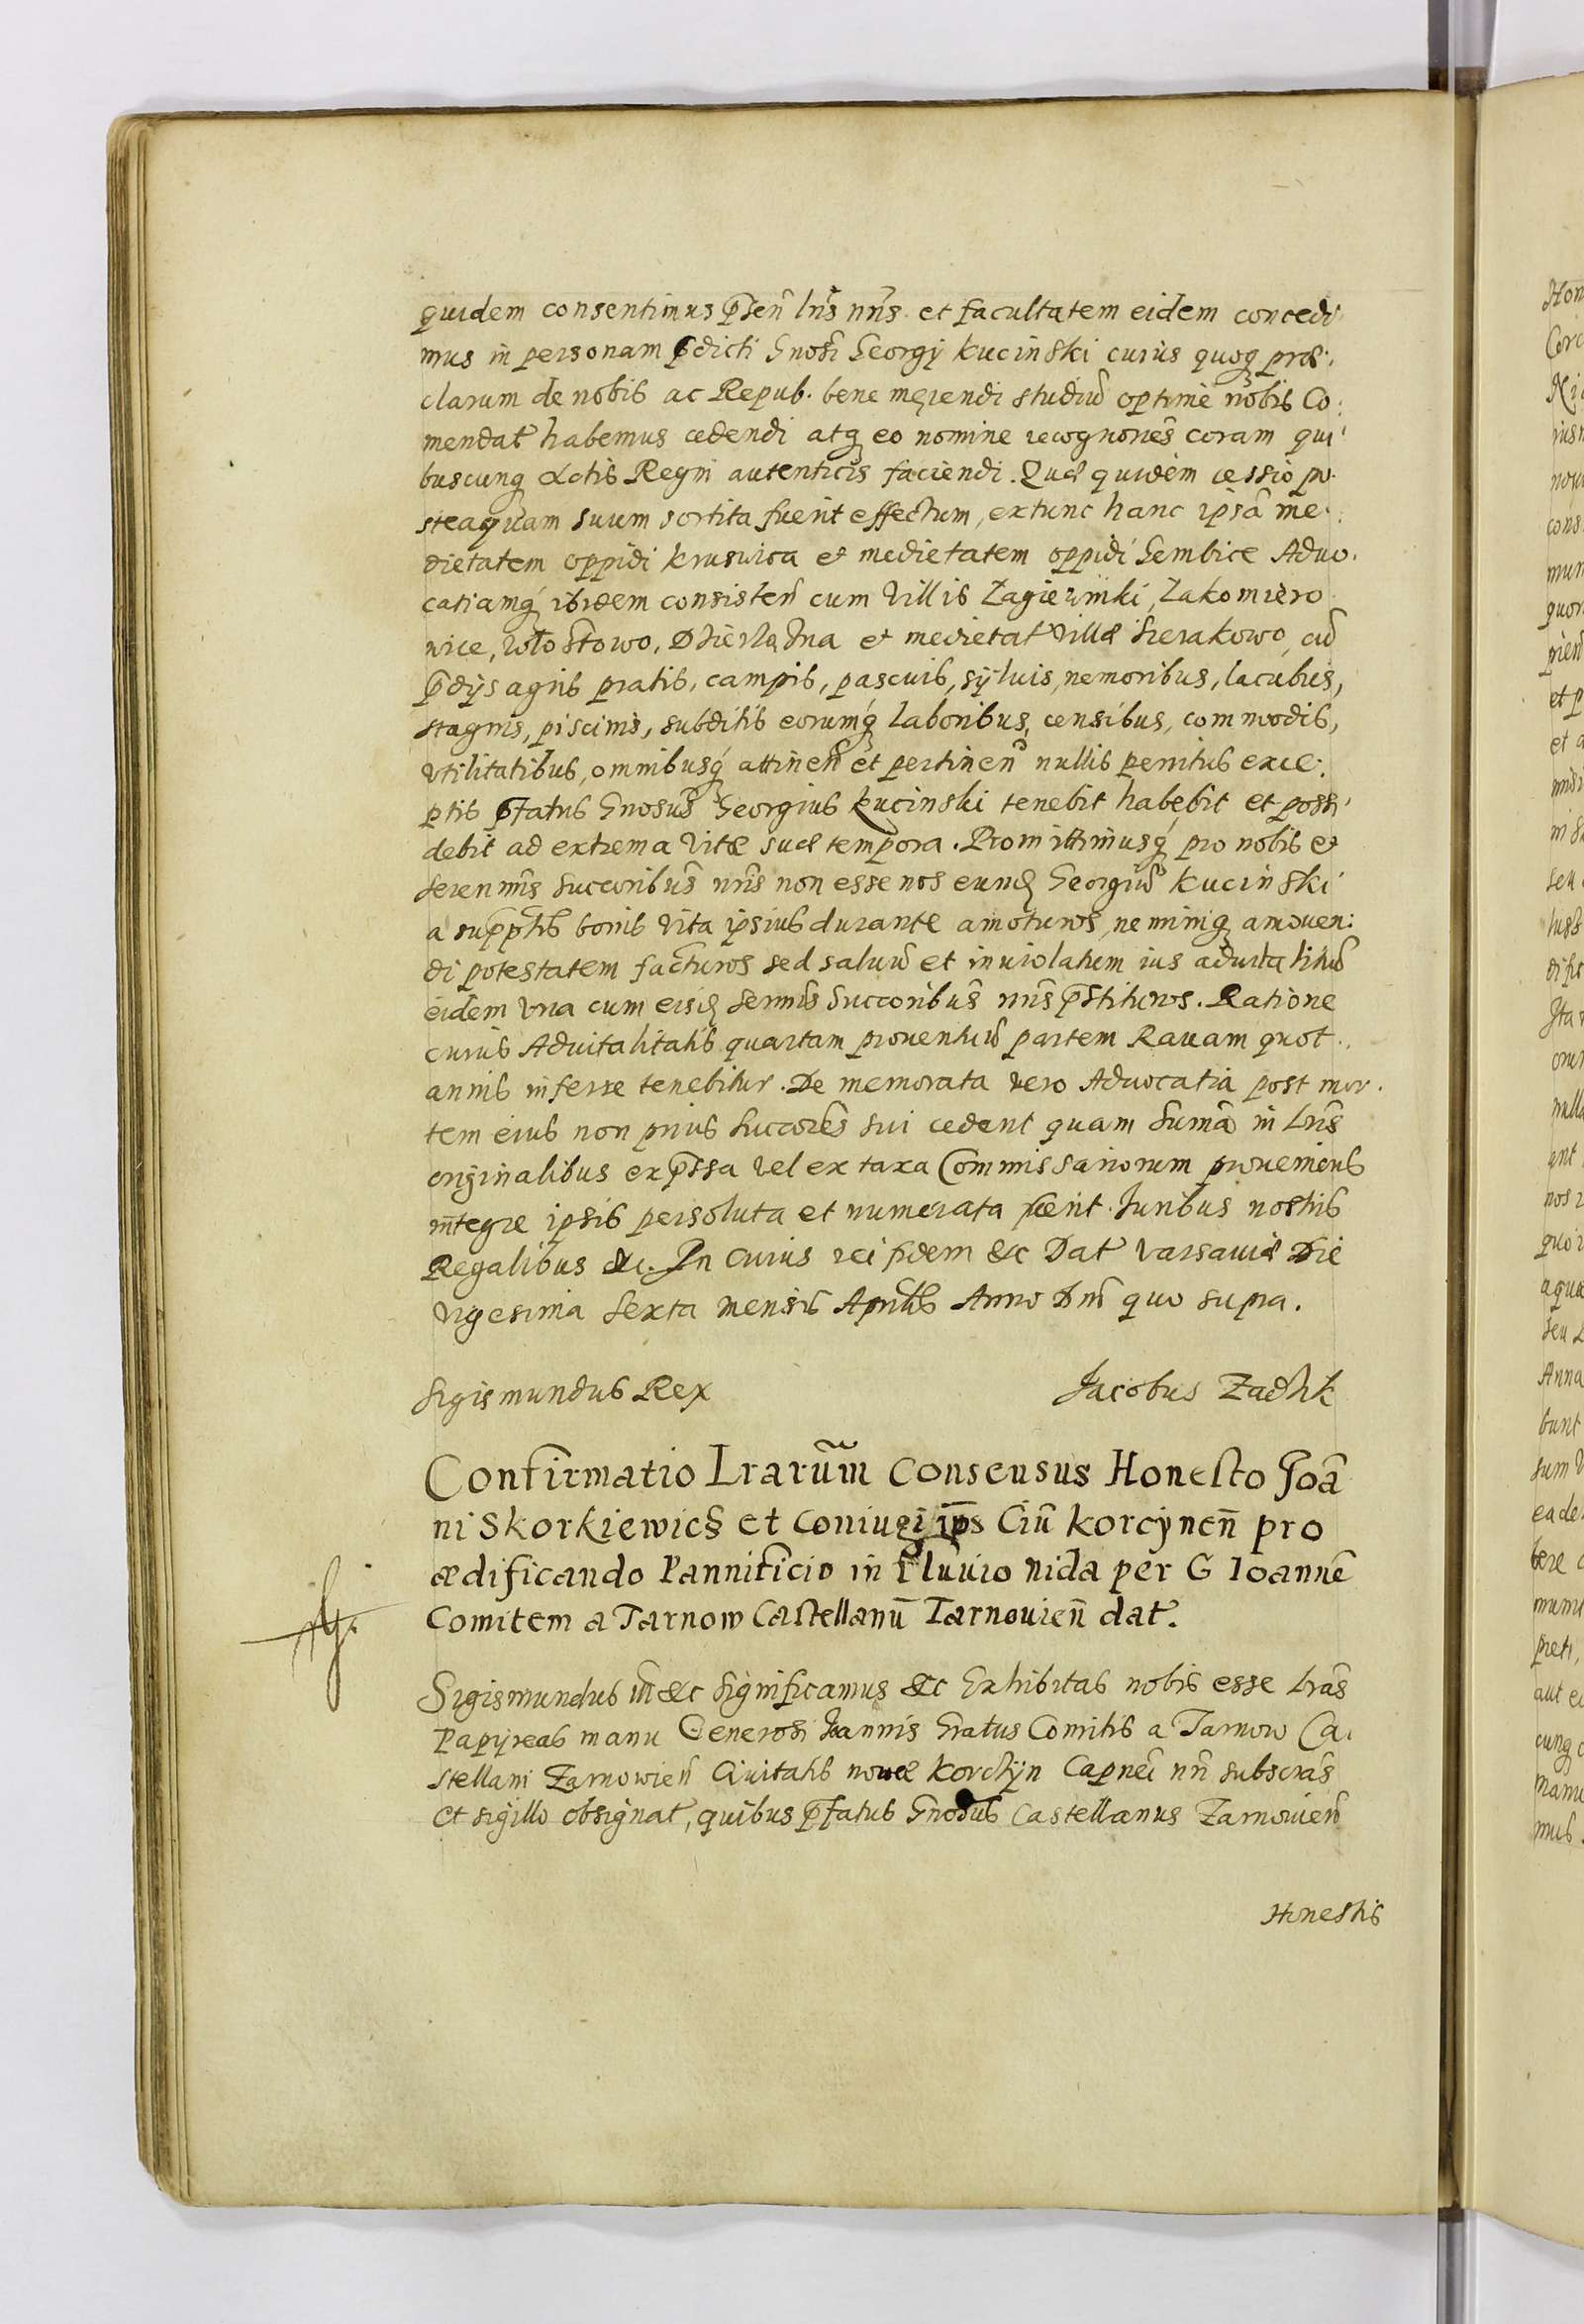 quidem consentimus p̃sen̄ lr̄is nr̄is et facultatem eidem concedi
mus in personam p̃dicti Gnosi Georgij Kucinski cuius quoq̨ præ:
clarum de nobis ac Repub. bene merendi studiũ optimè nobis Co:
mendat̃ habemus cedendi atq̨ eo nomine recognones̃ coram qui
buscunq̨ Actis Regni autenticis faciendi. Quæ quidem cessio po
steaquam suum sortita fuerit effectum, extunc hanc ipsã me:
dietatem oppidi Kruswica et medietatem oppidi Gembice Advo.
catiamq̨ ibidem consisten̄ cum Villis Zagiewniki, Zakomiero
wice, Wlostowo, et medietat̃ Villæ Sierakowo, cũ
p̃dijs agris pratis, campis, pascuis, syluis, nemoribus, lacubus,
stagnis, piscinis, subditis eorumq̨ laboribus, censibus, commodis,
vtilitatibus, omnibusq̨ attinen̄ et pertinen̄ nullis penitus exce:
ptis p̃fatus Gnosus̃ Georgius Kucinski tenebit habebit et possi
debit ad extrema Vitæ suæ tempora. Promittimusq̨ pro nobis et
Seren̄mis Succoribus̃ nr̄is non esse nos eund̨ Georgiũ Kucinski
a supp̃tis bonis Vita ipsius durante amoturos, neminiq̨ amouen:
di potestatem facturos sed saluũ et inuiolatum ius aduitalitiũ
eidem vna cum eisd̨ Sermis̃ Succoribus̃ nr̄is p̃stituros. Ratione
cuius Aduitalitatis quartam prouentuũ partem Rauam quot
annis inferre tenebitur. De memorata vero Advocatia post mor.
tem eius non prius Succores̃ sui cedent quam Sumã in Lr̄is
originalibus exp̃ssa vel ex taxa Commissariorum proueniens
integre ipsis persoluta et numerata fuerit. Juribus nostris
Regalibus &c. In Cuius rei fidem &c Dat̃ Varsauiæ Die
vigesima sexta Mensis Aprilis Anno Dnī quo supra.
Sigismundus Rex Jacobus Zadzik
Confirmatio Lrarum̃ Consensus Honesto Joã
ni Skorkiewicz et Coniugi ips̄ Ciũ Korcynen̄ pro
ædificando Pannificio in Fluuio Nida per G Ioannẽ
Comitem a Tarnow Castellanū Tarnouien̄ dat̃.
Sigismundus III &c Significamus &c Exhibitas nobis esse Lr̄as
Papyreas manu Generosi Joannis Gratus Comitis a Tarnow Ca.
stellani Zarnowien̄ Ciuitatis nouæ Korchÿn Capnei nr̄i subscras̃
et sigillo obsignat̃, quibus p̃fatus Gnosus Castellanus Zarnowien̄
Honestis